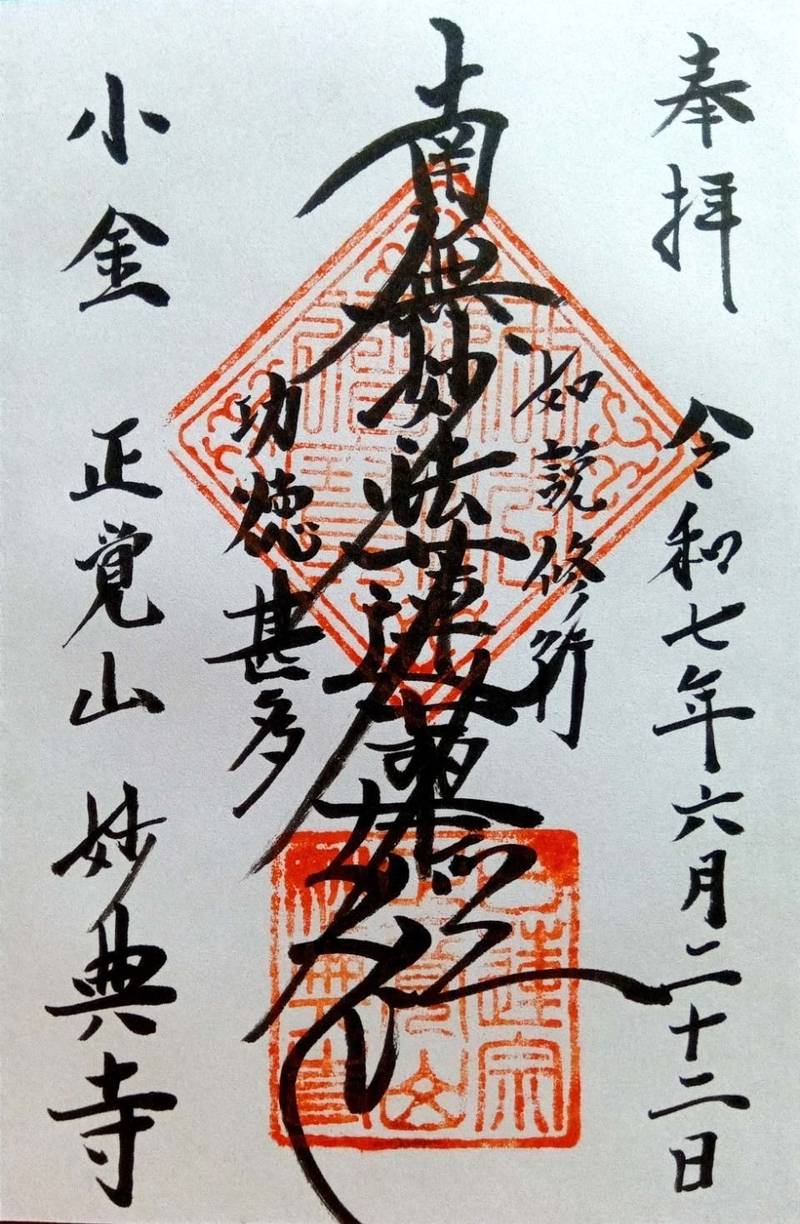 奉拝 令和七年六月二十二日
如説修行
南無妙法蓮華経
功徳甚多
小金 正覚山 妙典寺
日蓮宗